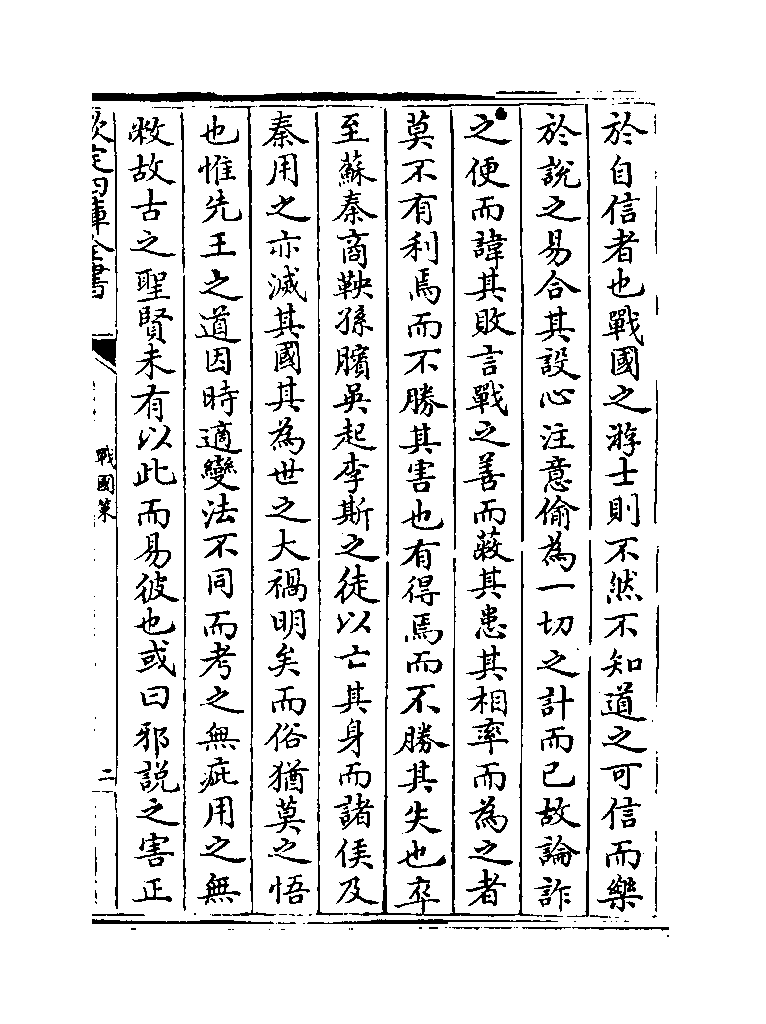 於自信者也戰國之游士則不然不知道之可信而樂
於說之易合其設心注意偷為一切之計而已故論詐
之便而諱其敗言戰之善而蔽其患其相率而為之者
莫不有利焉而不勝其害也有得焉而不勝其失也卒
至蘇秦商鞅孫臏吳起李斯之徒以亡其身而諸侯及
秦用之亦滅其國其為世之大禍明矣而俗猶莫之悟
也惟先王之道因時適變法不同而考之無疵用之無
敝故古之聖賢未有以此而易彼也或曰邪說之害正
欽定四庫全書
戰國策
二